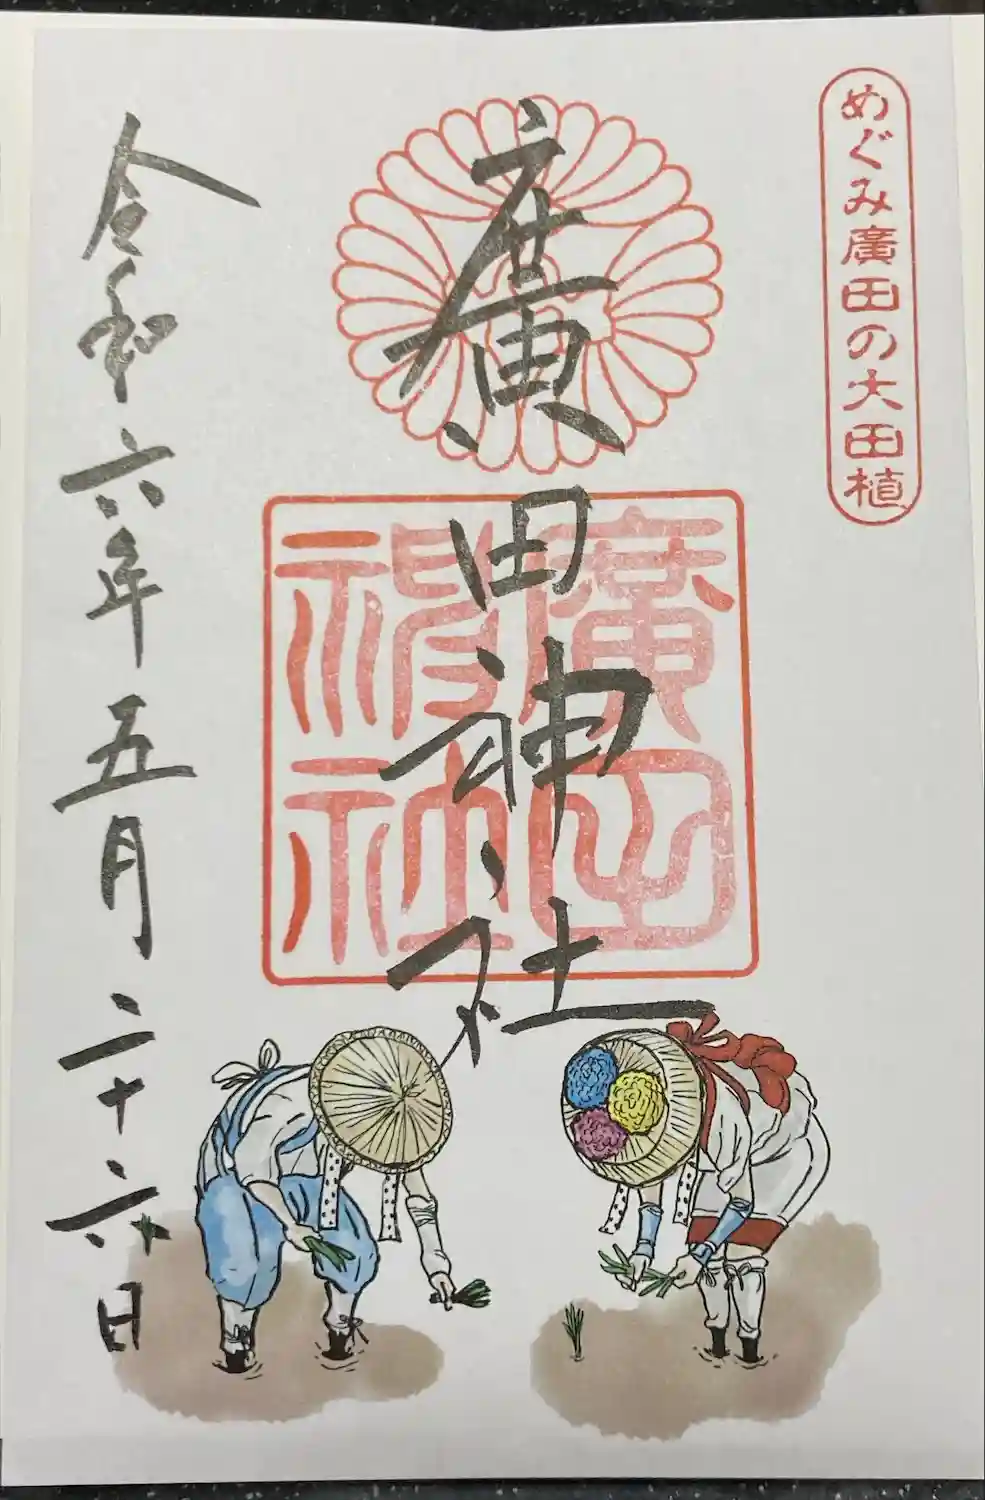 めぐみ廣田の大田植
廣田神社
廣田
神社
令和六年五月二十六日